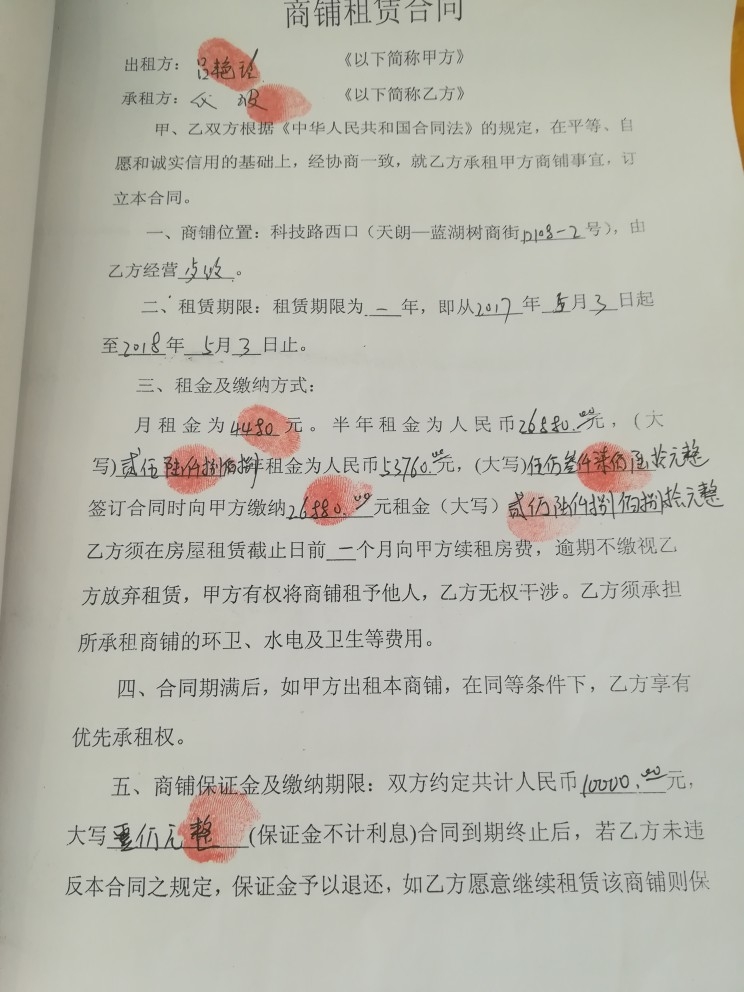 商铺租赁合同
出租方：吕艳 《以下简称甲方》
承租方： 《以下简称乙方》
甲、乙双方根据《中华人民共和国合同法》的规定，在平等、自
愿和诚实信用的基础上，经协商一致，就乙方承租甲方商铺事宜，订
立本合同。
一、商铺位置：科技路西口（天朗—蓝湖树商街D108-2号），由
乙方经营 。
二、租赁期限：租赁期限为一年，即从2017年5月3日起
至2018年5月3日止。
三、租金及缴纳方式：
月租金为4480元。半年租金为人民币26880.00元，（大
写)贰万陆仟捌佰捌年租金为人民币53760.00元，(大写)伍万叁仟柒佰陆拾元整
签订合同时向甲方缴纳26880.00元租金（大写）贰万陆仟捌佰捌拾元整
乙方须在房屋租赁截止日前一个月向甲方续租房费，逾期不缴视乙
方放弃租赁，甲方有权将商铺租予他人，乙方无权干涉。乙方须承担
所承租商铺的环卫、水电及卫生等费用。
四、合同期满后，如甲方出租本商铺，在同等条件下，乙方享有
优先承租权。
五、商铺保证金及缴纳期限：双方约定共计人民币10000.00元，
大写壹万元整(保证金不计利息)合同到期终止后，若乙方未违
反本合同之规定，保证金予以退还，如乙方愿意继续租赁该商铺则保